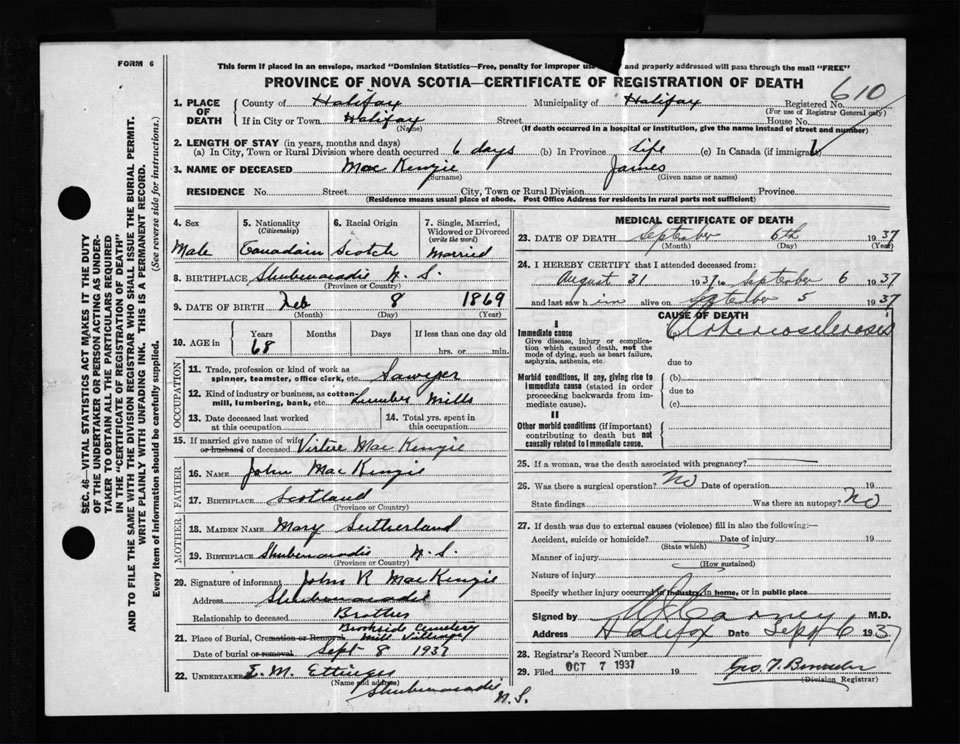 FORM 6
This form if placed in an envelope, marked "Dominion Statistics—Free, penalty for improper use and properly addressed will pass through the mail "FREE"
PROVINCE OF NOVA SCOTIA—CERTIFICATE OF REGISTRATION OF DEATH
610
1. PLACE OF DEATH County of Halifax Municipality of Halifax Registered No.
(For use of Registrar General only)
If in City or Town Halifax Street House No.
(Name) (If death occurred in a hospital or institution, give the name instead of street and number)
2. LENGTH OF STAY (in years, months and days)
(a) In City, Town or Rural Division where death occurred 6 days (b) In Province Life (c) In Canada (if immigrant)
3. NAME OF DECEASED Mac Kenzie James
(Surname) (Given name or names)
RESIDENCE No. Street City, Town or Rural Division Province
(Residence means usual place of abode. Post Office Address for residents in rural parts not sufficient)
SEC. 46—VITAL STATISTICS ACT MAKES IT THE DUTY
OF THE UNDERTAKER OR PERSON ACTING AS UNDER-
TAKER TO OBTAIN ALL THE PARTICULARS REQUIRED
IN THE "CERTIFICATE OF REGISTRATION OF DEATH"
AND TO FILE THE SAME WITH THE DIVISION REGISTRAR WHO SHALL ISSUE THE BURIAL PERMIT.
WRITE PLAINLY WITH UNFADING INK. THIS IS A PERMANENT RECORD.
Every item of information should be carefully supplied. (See reverse side for instructions.)
4. Sex 5. Nationality (Citizenship) 6. Racial Origin 7. Single, Married, Widowed or Divorced (write the word)
Male Canadain Scotch Married
8. BIRTHPLACE Shubenacadie N. S.
(Province or Country)
9. DATE OF BIRTH Feb 8 1869
(Month) (Day) (Year)
10. AGE in Years Months Days If less than one day old
68 hrs. or min.
OCCUPATION
11. Trade, profession or kind of work as spinner, teamster, office clerk, etc. Sawyer
12. Kind of industry or business, as cotton mill, lumbering, bank, etc. Lumber Mills
13. Date deceased last worked at this occupation 14. Total yrs. spent in this occupation
15. If married give name of wife or husband of deceased Mac Kenzie
FATHER
16. NAME John Mac Kenzie
17. BIRTHPLACE Scotland
(Province or Country)
MOTHER
18. MAIDEN NAME Mary Sutherland
19. BIRTHPLACE Shubenacadie N. S.
(Province or Country)
20. Signature of informant John R MacKenzie
Address Shubenacadie
Relationship to deceased Brother
Brookside Cemetery
21. Place of Burial, Cremation or Removal Mill Village
Date of burial or removal Sept 8 1937
22. UNDERTAKER E. M. Ettinger
(Name and address)
Shubenacadie N. S.
MEDICAL CERTIFICATE OF DEATH
23. DATE OF DEATH September 6th 1937
(Month) (Day) (Year)
24. I HEREBY CERTIFY that I attended deceased from:
August 31 1937 to September 6 1937
and last saw him alive on September 5 1937
CAUSE OF DEATH
I
Immediate cause Arteriosclerosis
Give disease, injury or complication which caused death, not the mode of dying, such as heart failure, asphyxia, asthenia, etc.
due to
Morbid conditions, if any, giving rise to Immediate cause (stated in order proceeding backwards from immediate cause).
(b)
due to
(c)
II
Other morbid conditions (if important) contributing to death but not causally related to immediate cause.
25. If a woman, was the death associated with pregnancy?
26. Was there a surgical operation? No Date of operation 19
State findings Was there an autopsy? No
27. If death was due to external causes (violence) fill in also the following:—
Accident, suicide or homicide? Date of injury 19
(State which)
Manner of injury
(How sustained)
Nature of injury
Specify whether injury occurred in industry, in home, or in public place
Signed by Carney M.D.
Address Halifax Date Sept 6 1937
28. Registrar's Record Number
29. Filed OCT 7 1937 19 Geo. T.
(Division Registrar)